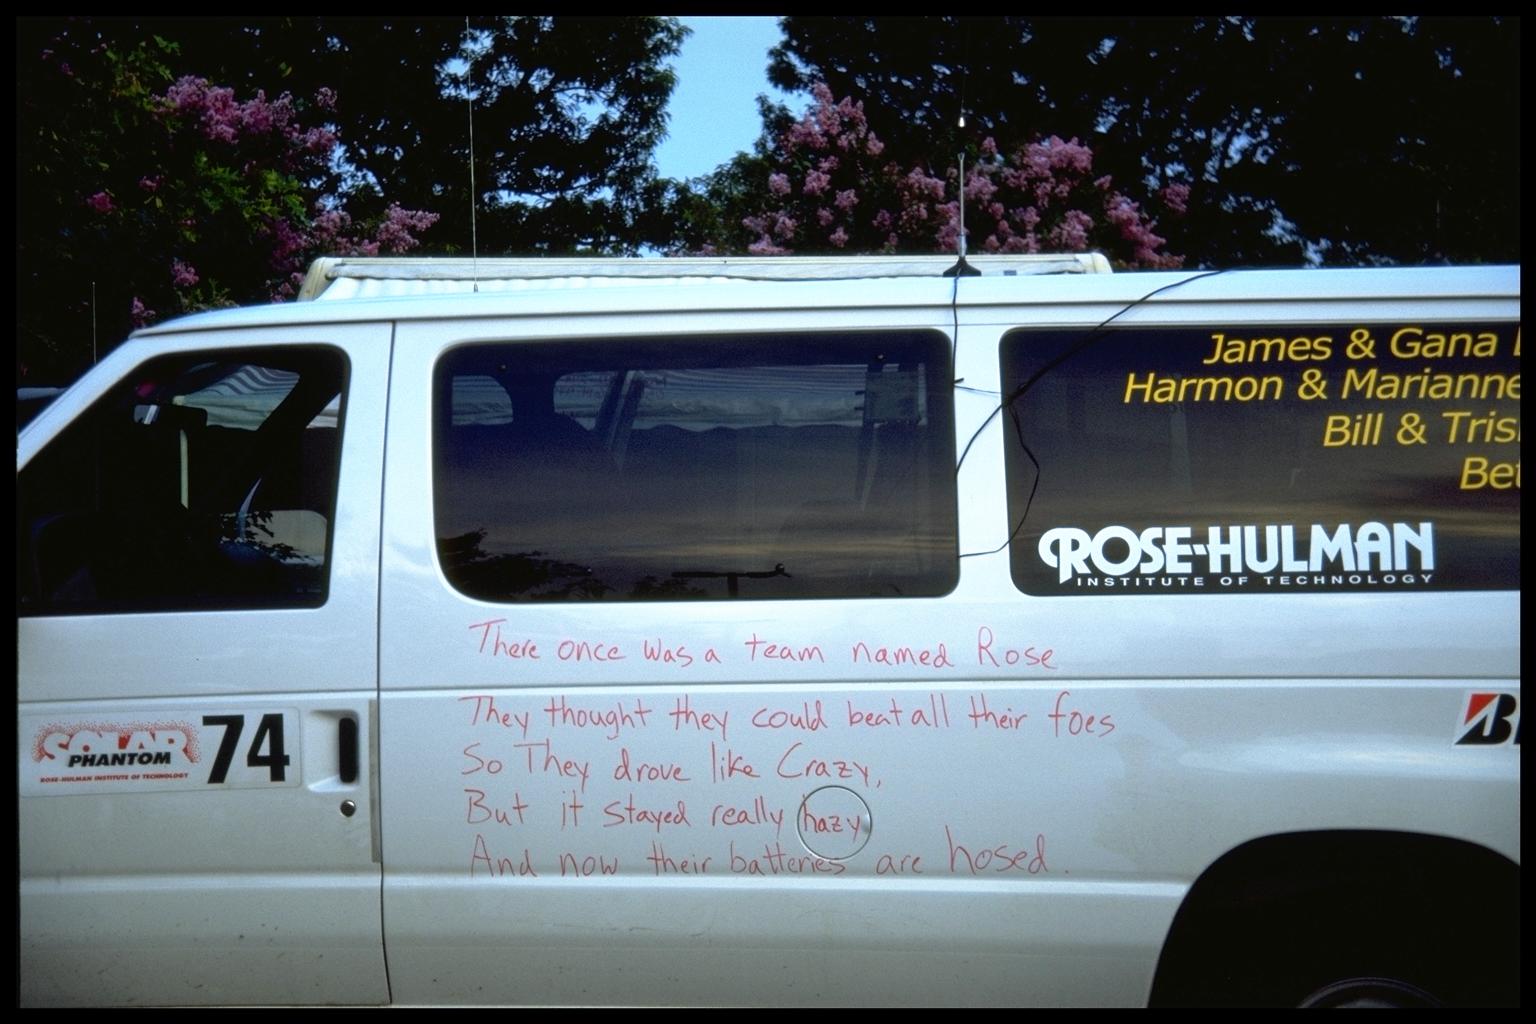 James & Gana
Harmon & Marianne
Bill & Tris
Bet
ROSE-HULMAN
INSTITUTE OF TECHNOLOGY
There once was a team named Rose
They thought they could beat all their foes
So They drove like Crazy,
But it stayed really hazy
And now their batteries are hosed.
SOLAR
PHANTOM
ROSE-HULMAN INSTITUTE OF TECHNOLOGY
74
B